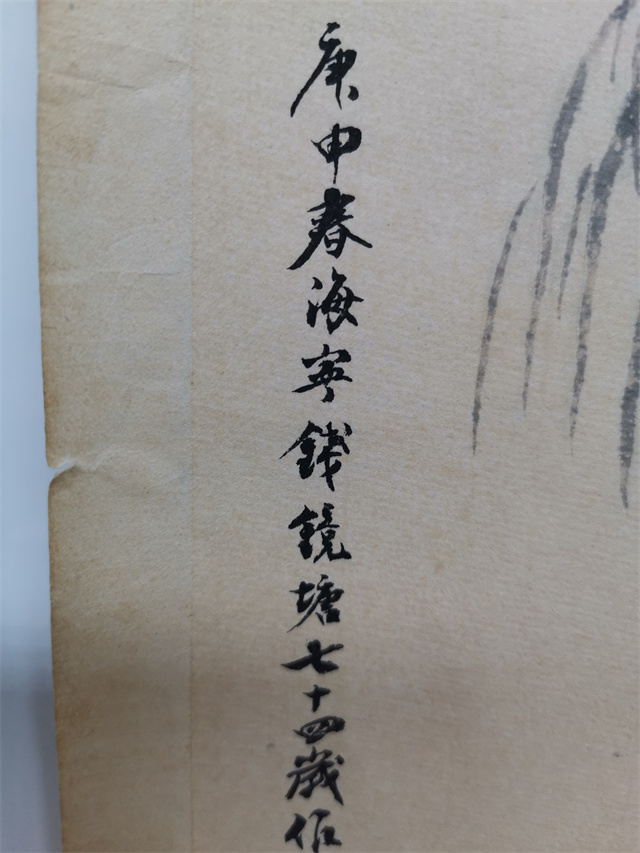 庚申春海寧錢鏡塘七十四歲作